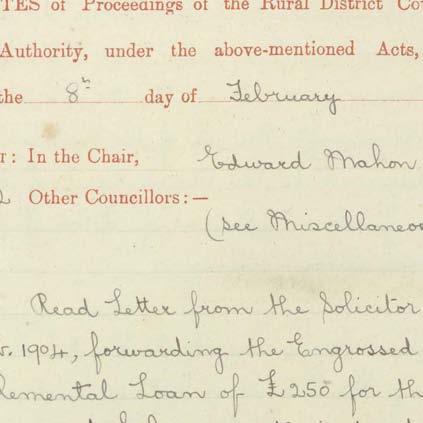 TES of Proceedings of the Rural District Co
Authority, under the above-mentioned Acts,
the 8th day of February
T: In the Chair, Edward Mahon
Other Councillors:—
(see Miscellaneou
Read Letter from the Solicitor
v. 1904, forwarding the Engrossed
lemental Loan of £250 for th